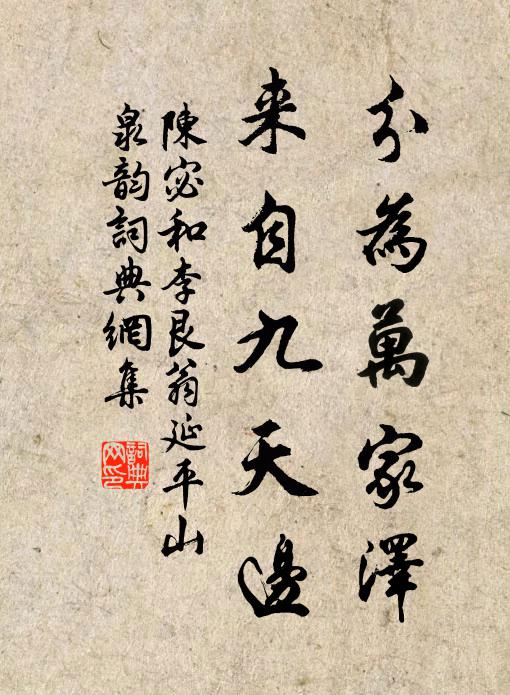 分為萬家澤
来自九天邊
陳宓和李艮翁延平山
泉韵詞典網集
詞典網印